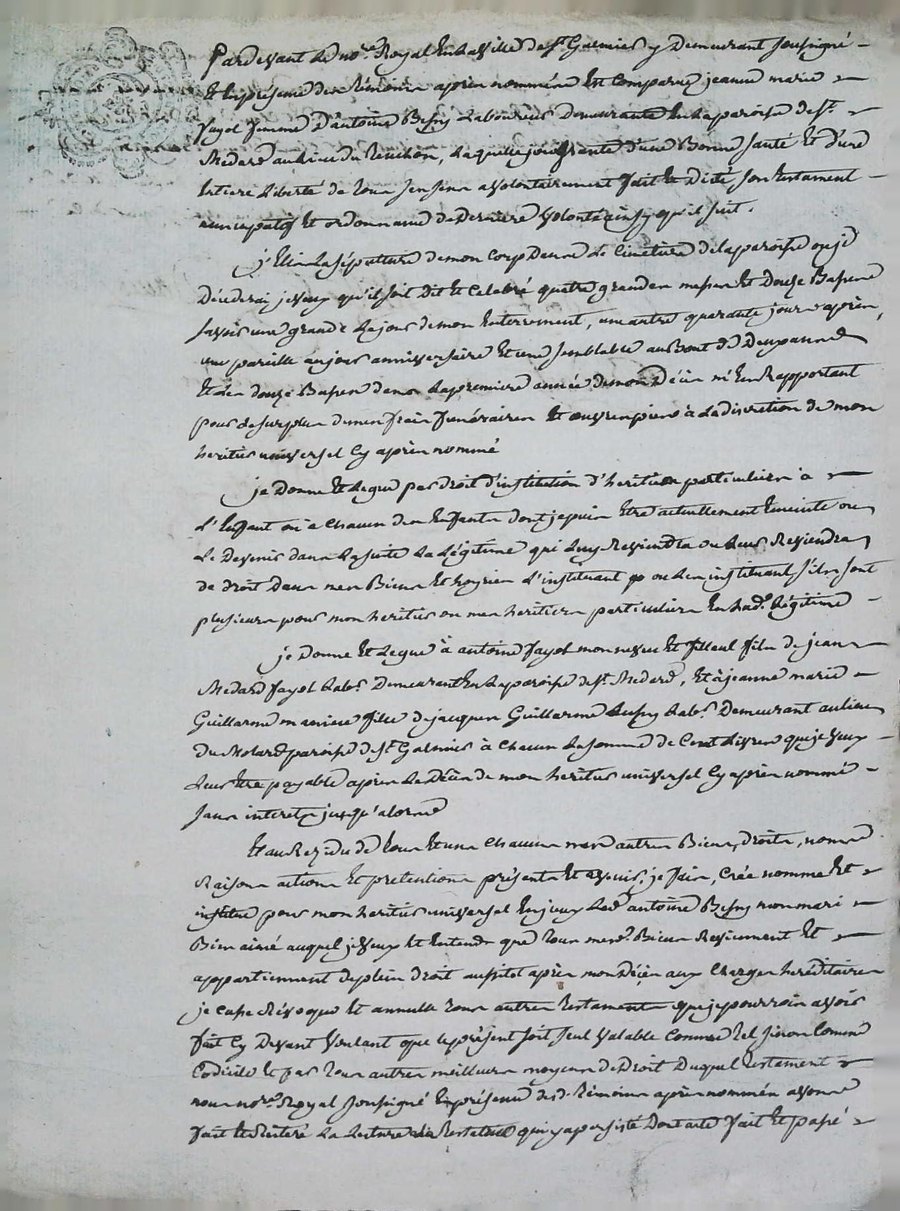 Pardevant le no.re Royal En la ville de St Galmier y Demeurant soussigné
Et En présence des témoins après nommés Est Comparue jeanne marie
fayol femme d'antoine Besfy Laboureur Demeurante En la paroisse de St
Medard au lieu du Ruchon, Laquelle jouissante d'une Bonne santé Et d'une
Entiere Liberté de tous ses sens a volontairement fait Et Dicté son testament
nuncupatif Et ordonnance de Derniere volonté ainsy qu'il suit.
j'Elis la sépulture de mon Corps Dans Le Cimetiere de la paroisse ou je
Décederai je veux qu'il soit Dit Et Celebré quatre grandes messes Et Douze Basses
savoir une grande Le jour de mon Enterrement, une autre quarante jours après,
une pareille au jour anniversaire Et une semblable au Bout de Deux années
Et Les douze Basses dans La premiere année de mon Décès m'En Rapportant
pour le surplus de mes frais funéraires Et œuvres pies à La discretion de mon
heritier universel Cy après nommé
je Donne Et Legue par droit d'institution d'heritiers particuliers à
L'Enfant ou a Chacun des Enfants dont je puis Etre actuellement Enceinte ou
Le Devenir dans La suite La Légitime qui Luy Reviendra ou Leur Reviendra
de droit Dans mes Biens Et hoyrie L'instituant ou Les instituant s'ils sont
plusieurs pour mon heritier ou mes heritiers particuliers En lad. Légitime
je Donne Et Legue à antoine fayol mon neveu Et filleul fils de jean
Medard fayol Labr. Demeurant En la paroisse de St Medard, Et à jeanne marie
Guillarme ma niece fille de jacques Guillarme Labr. Demeurant au lieu
Du Molard paroisse de St Galmier à Chacun La somme de Cent Livres que je veux
Leur Etre payable après Le Décès de mon heritier universel Cy après nommé
sans interets jusqu'alors
Et au Rezidu de tous Et uns Chacuns mes autres Biens, droits, noms
Raisons actions Et pretentions présents Et avenir, je fais, Crée nomme Et
institue pour mon heritier universel Led. antoine Besfy mon mari
Bien aimé auquel je veux Et Entends que tous mesd. Biens Reviennent Et
appartiennent de plein droit aussitot après mon Décès aux Charges héréditaires
je casse Révoque Et annulle tous autres testaments que je pourrois avoir
fait Cy Devant voulant que le présent soit seul valable Comme tel sinon Comme
Codicile Et par tous autres meilleurs moyens de Droit Duquel testament
nous no.re Royal soussigné En présence desd. témoins après nommés avons
fait Et Reiteré La Lecture à la testatrice qui y a persisté Dont acte fait Et passé